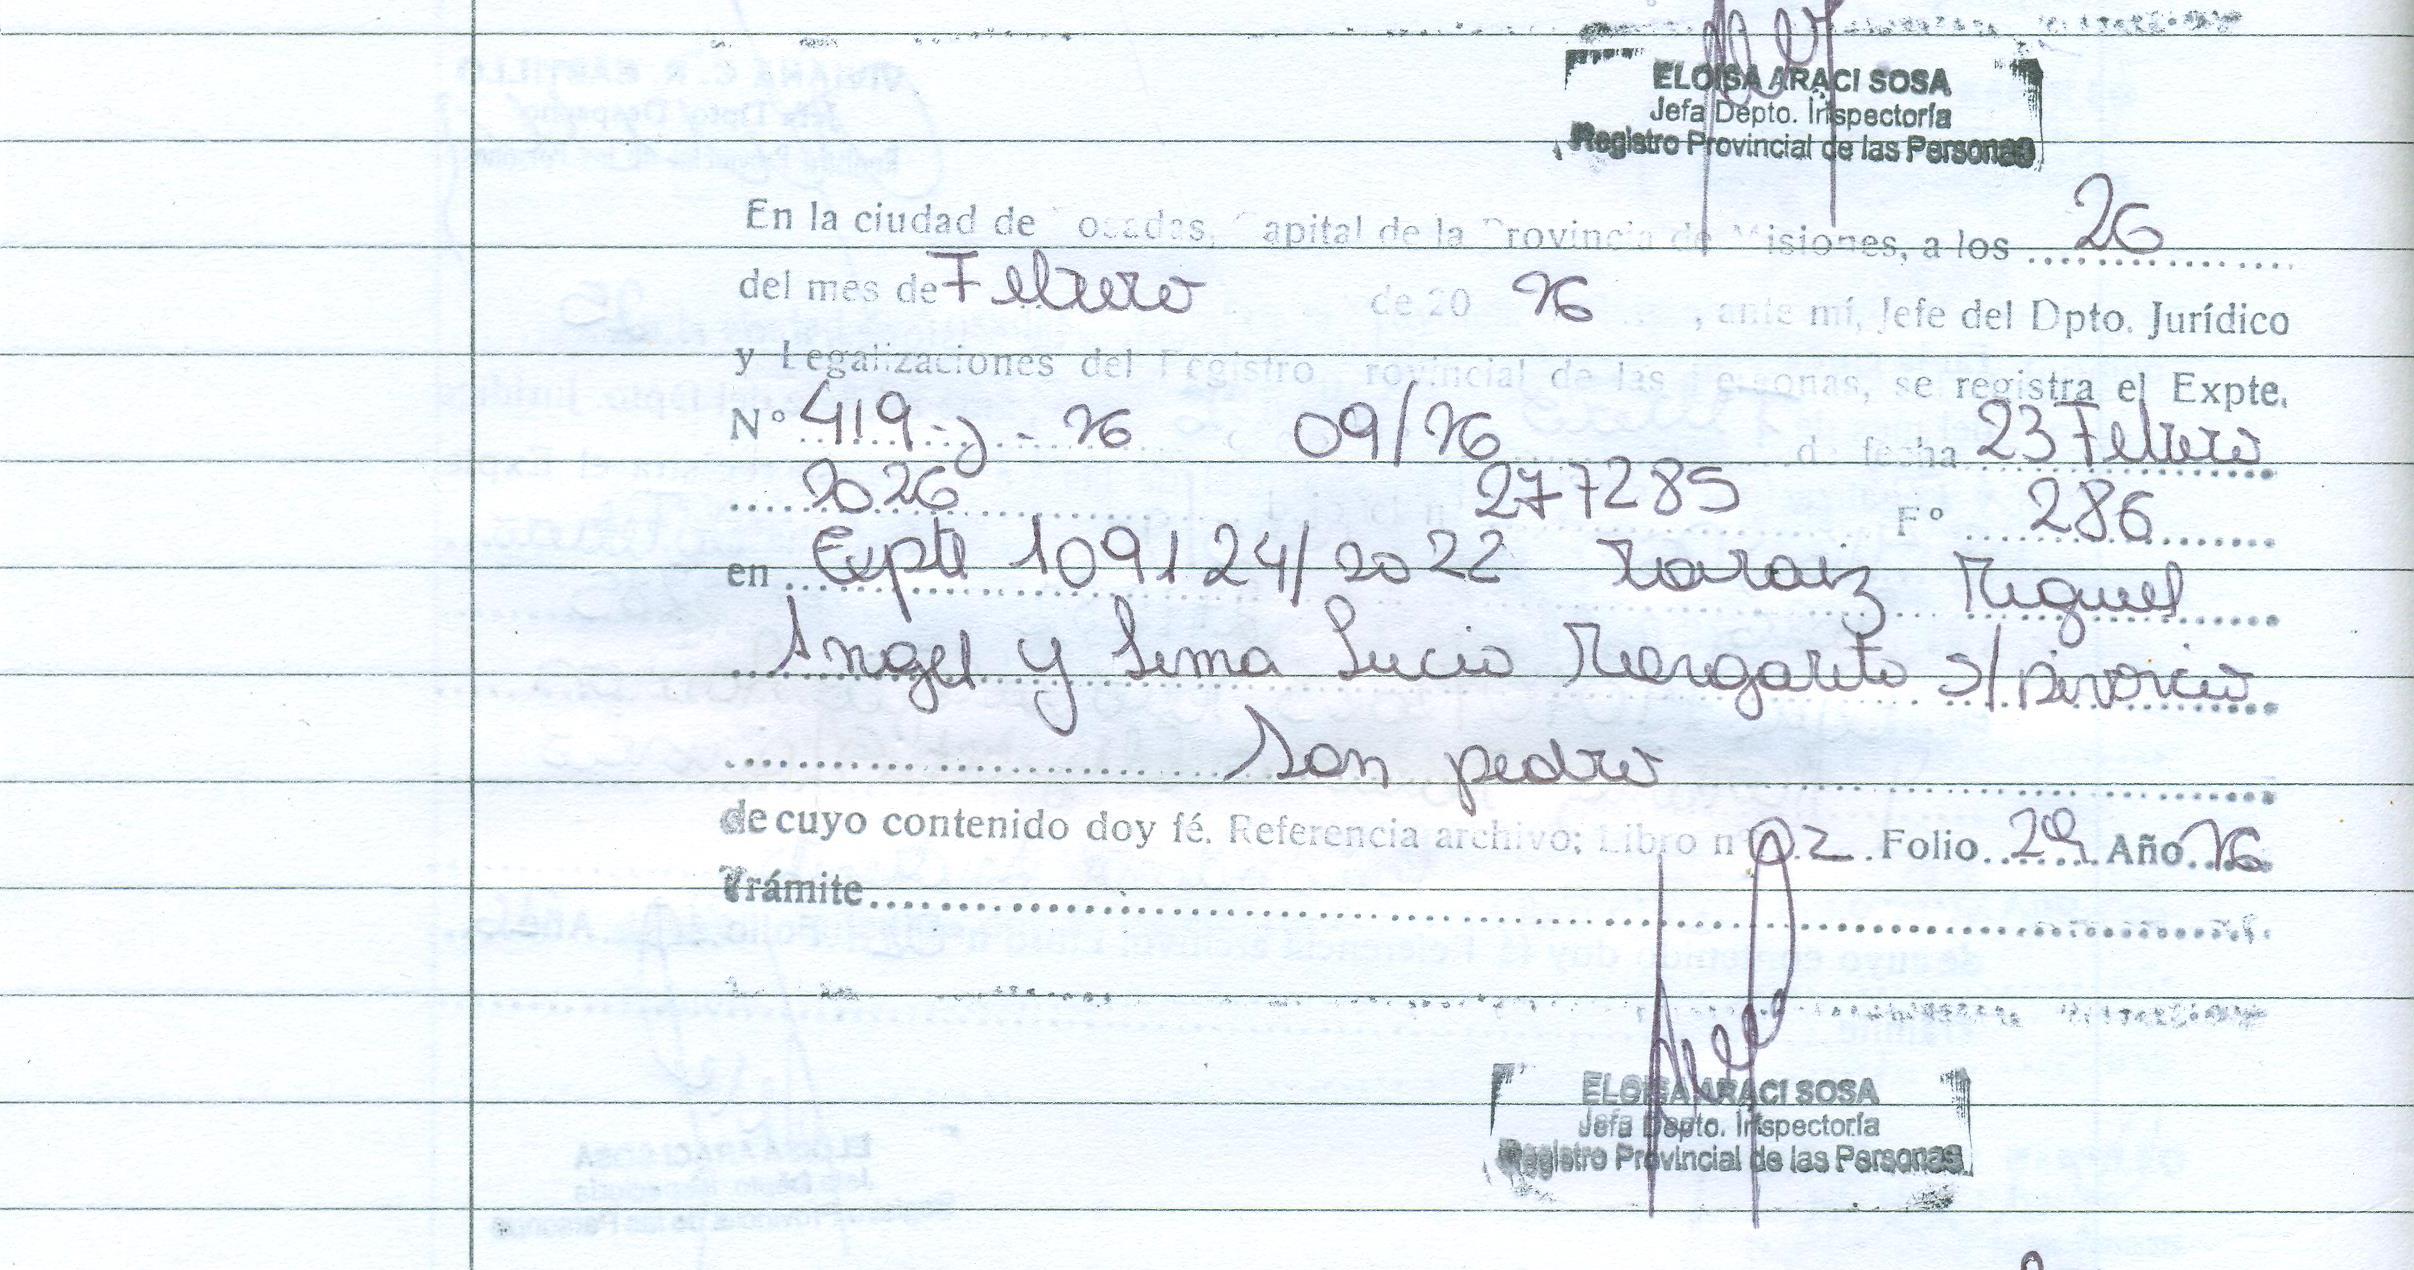 ELOISA ARACI SOSA
Jefa Depto. Inspectoría
Registro Provincial de las Personas
En la ciudad de Posadas, Capital de la Provincia de Misiones, a los 26
del mes de Febrero de 20 26, ante mí, Jefe del Dpto. Jurídico
y Legalizaciones del Registro Provincial de las Personas, se registra el Expte.
Nº 419-J-26 09/26 de fecha 23 Febrero
2026 277285 Fº 286
en Expte 109124/2022 Miguel
Angel y Lima Lucia Margarita s/Divorcio
San pedro
de cuyo contenido doy fé. Referencia archivo: Libro nº 02 Folio 29 Año 26
Trámite
ELOISA ARACI SOSA
Jefa Depto. Inspectoría
Registro Provincial de las Personas